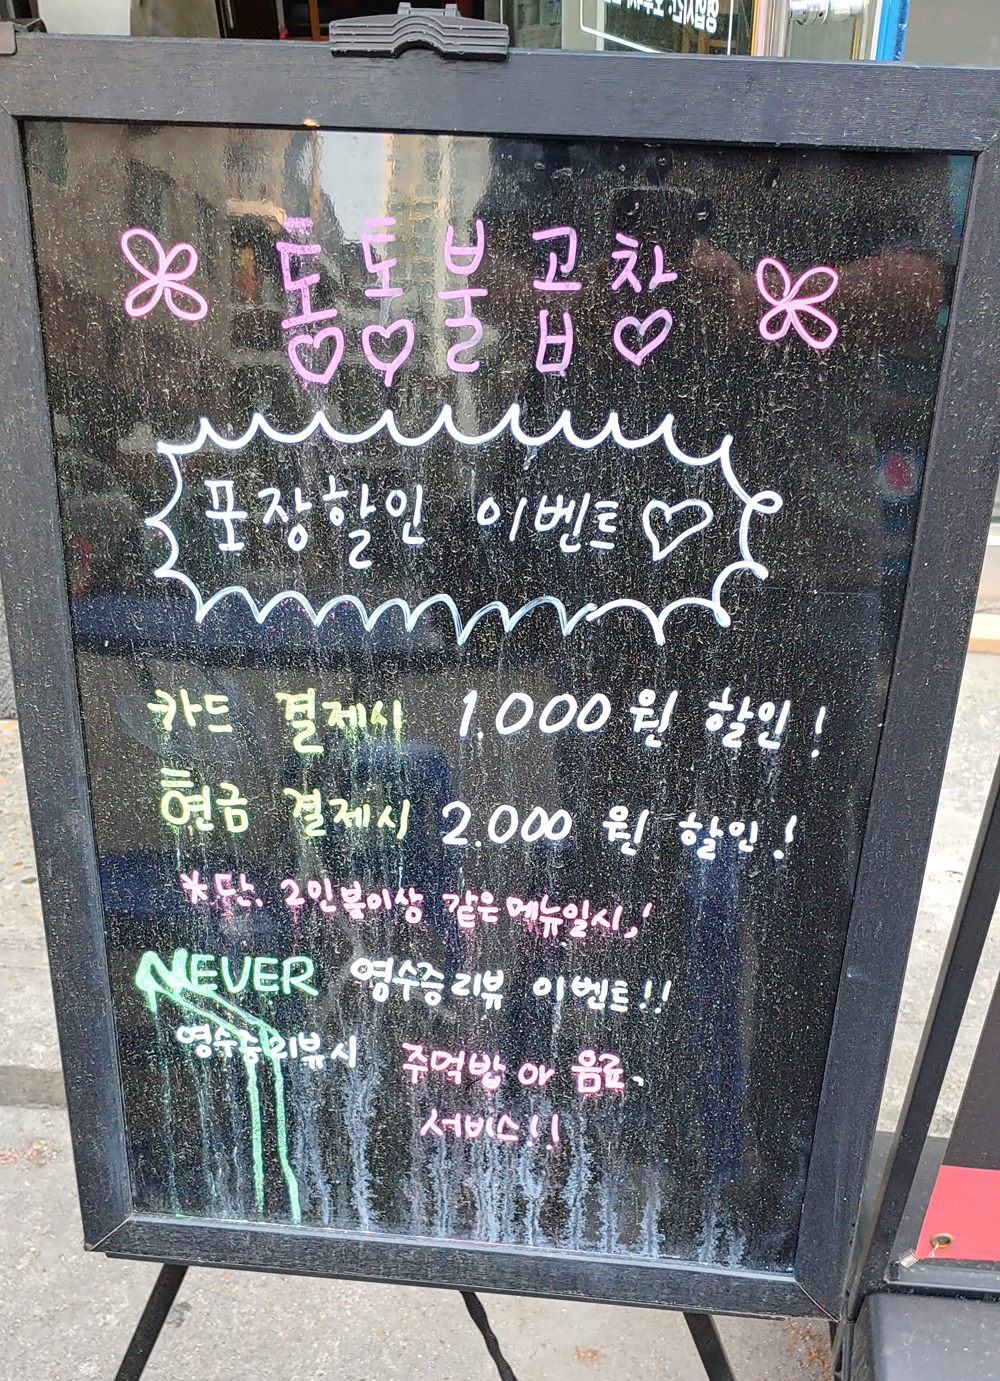 통통불곱창
포장할인 이벤트♡
카드 결제시 1.000원 할인!
현금 결제시 2.000원 할인!
*단. 2인분이상 같은메뉴일시,!
NEVER 영수증리뷰 이벤트!!
영수증리뷰시 주먹밥 or 음료.
서비스!!